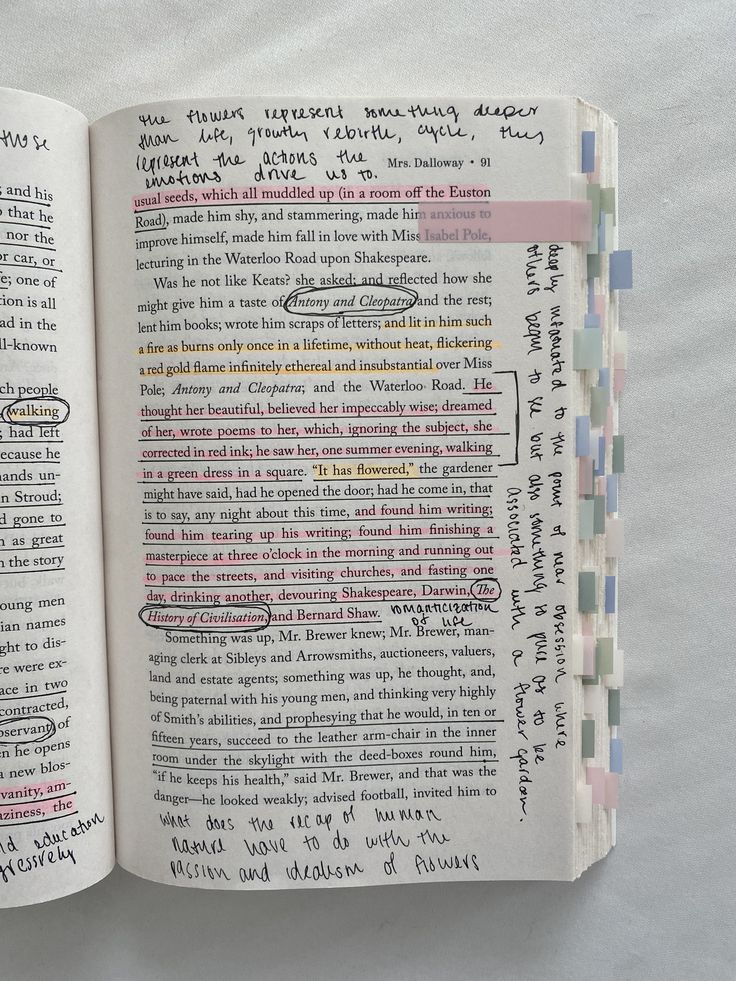 those
; and his
o that he
nor the
or car, or
e; one of
tion is all
ad in the
ll-known
ch people
walking
; had left
ecause he
ands un-
n Stroud;
d gone to
n as great
n the story
oung men
ian names
ght to dis-
re were ex-
ace in two
contracted,
bservant of
en he opens
a new blos-
vanity, am-
aziness, the
ld education
gressively
the flowers represent something deeper
than life, growth, rebirth, cycle, they
represent the actions the
emotions drive us to.
Mrs. Dalloway • 91
usual seeds, which all muddled up (in a room off the Euston
Road), made him shy, and stammering, made him anxious to
improve himself, made him fall in love with Miss Isabel Pole,
lecturing in the Waterloo Road upon Shakespeare.
Was he not like Keats? she asked; and reflected how she
might give him a taste of Antony and Cleopatra and the rest;
lent him books; wrote him scraps of letters; and lit in him such
a fire as burns only once in a lifetime, without heat, flickering
a red gold flame infinitely ethereal and insubstantial over Miss
Pole; Antony and Cleopatra; and the Waterloo Road. He
thought her beautiful, believed her impeccably wise; dreamed
of her, wrote poems to her, which, ignoring the subject, she
corrected in red ink; he saw her, one summer evening, walking
in a green dress in a square. “It has flowered,” the gardener
might have said, had he opened the door; had he come in, that
is to say, any night about this time, and found him writing;
found him tearing up his writing; found him finishing a
masterpiece at three o’clock in the morning and running out
to pace the streets, and visiting churches, and fasting one
day, drinking another, devouring Shakespeare, Darwin, The
History of Civilisation, and Bernard Shaw.
romanticization
of life
Something was up, Mr. Brewer knew; Mr. Brewer, man-
aging clerk at Sibleys and Arrowsmiths, auctioneers, valuers,
land and estate agents; something was up, he thought, and,
being paternal with his young men, and thinking very highly
of Smith’s abilities, and prophesying that he would, in ten or
fifteen years, succeed to the leather arm-chair in the inner
room under the skylight with the deed-boxes round him,
“if he keeps his health,” said Mr. Brewer, and that was the
danger—he looked weakly; advised football, invited him to
what does the recap of human
nature have to do with the
passion and idealism of flowers
deeply infatuated to the point of near obsession where
others begin to see but also something so pure as to be
associated with a flower garden.